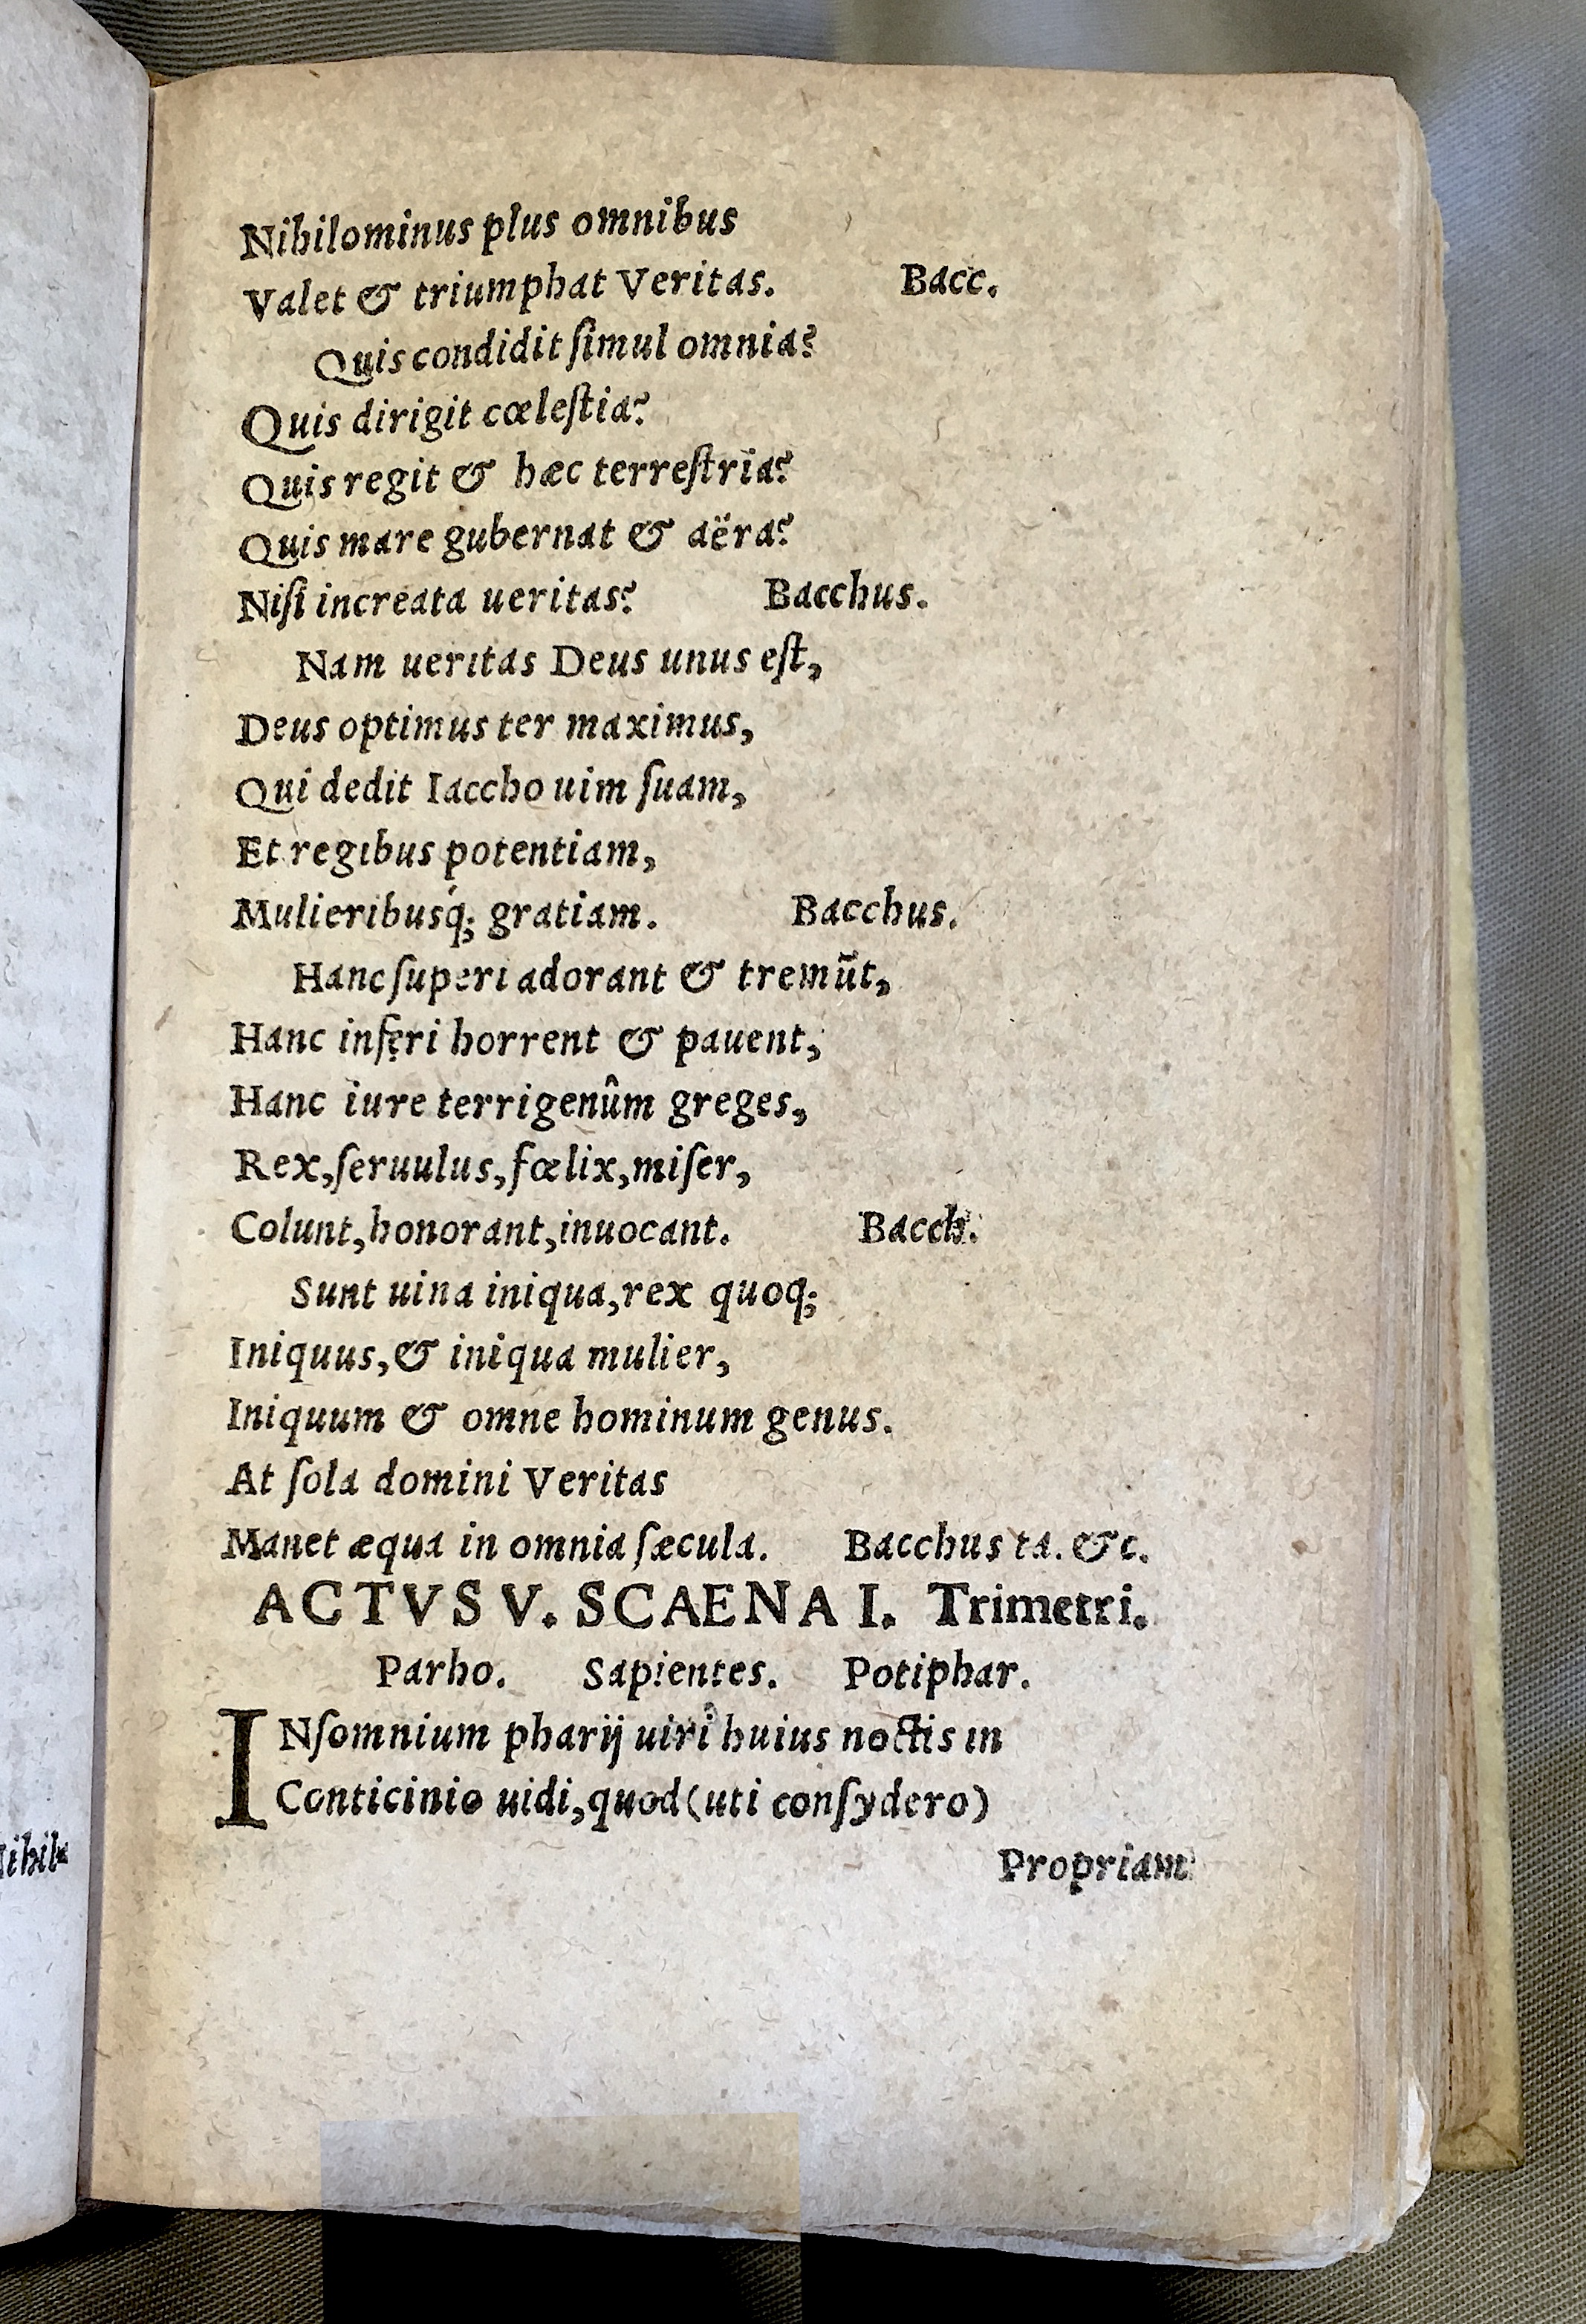 Nihilominus plus omnibus
Valet & triumphat Veritas. Bacc.
Quis condidit ſimul omnia?
Quis dirigit cœleſtia?
Quis regit & hæc terreſtria?
Quis mare gubernat & aëra?
Niſi increata ueritas? Bacchus.
Nam ueritas Deus unus eſt,
Deus optimus ter maximus,
Qui dedit Iaccho uim ſuam,
Et regibus potentiam,
Mulieribusq́; gratiam. Bacchus.
Hanc ſuperi adorant & tremūt,
Hanc inferi horrent & pauent,
Hanc iure terrigenûm greges,
Rex, ſeruulus, fœlix, miſer,
Colunt, honorant, inuocant. Bacch.
Sunt uina iniqua, rex quoq;
Iniquus, & iniqua mulier,
Iniquum & omne hominum genus.
At ſola domini Veritas
Manet æqua in omnia ſæcula. Bacchus ta. &c.
ACTVS V. SCAENA I. Trimetri.
Parho. Sapientes. Potiphar.
INſomnium pharij uiri huius noctis in
Conticinio uidi, quod (uti conſydero)
Propriam